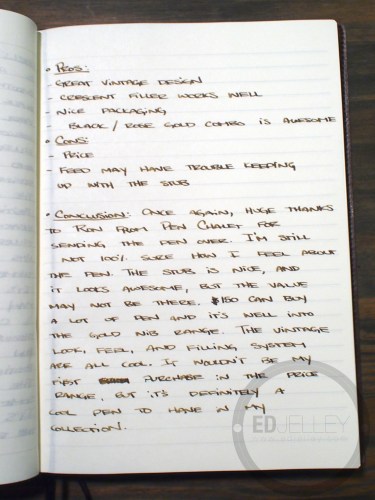 • Pros:
- Great vintage design
- Crescent filler works well
- Nice packaging
Black / Rose Gold combo is awesome
• Cons:
- Price
- Feed may have trouble keeping
up with the stub
• Conclusion: Once again, huge thanks
to Ron from Pen Chalet for
sending the pen over. I'm still
not 100% sure how I feel about
the pen. The stub is nice, and
it looks awesome, but the value
may not be there. $150 can buy
a lot of pen and it's well into
the gold nib range. The vintage
look, feel, and filling system
are all cool. It wouldn't be my
first purchase in the price
range, but it's definitely a
cool pen to have in my
collection.
ED JELLEY